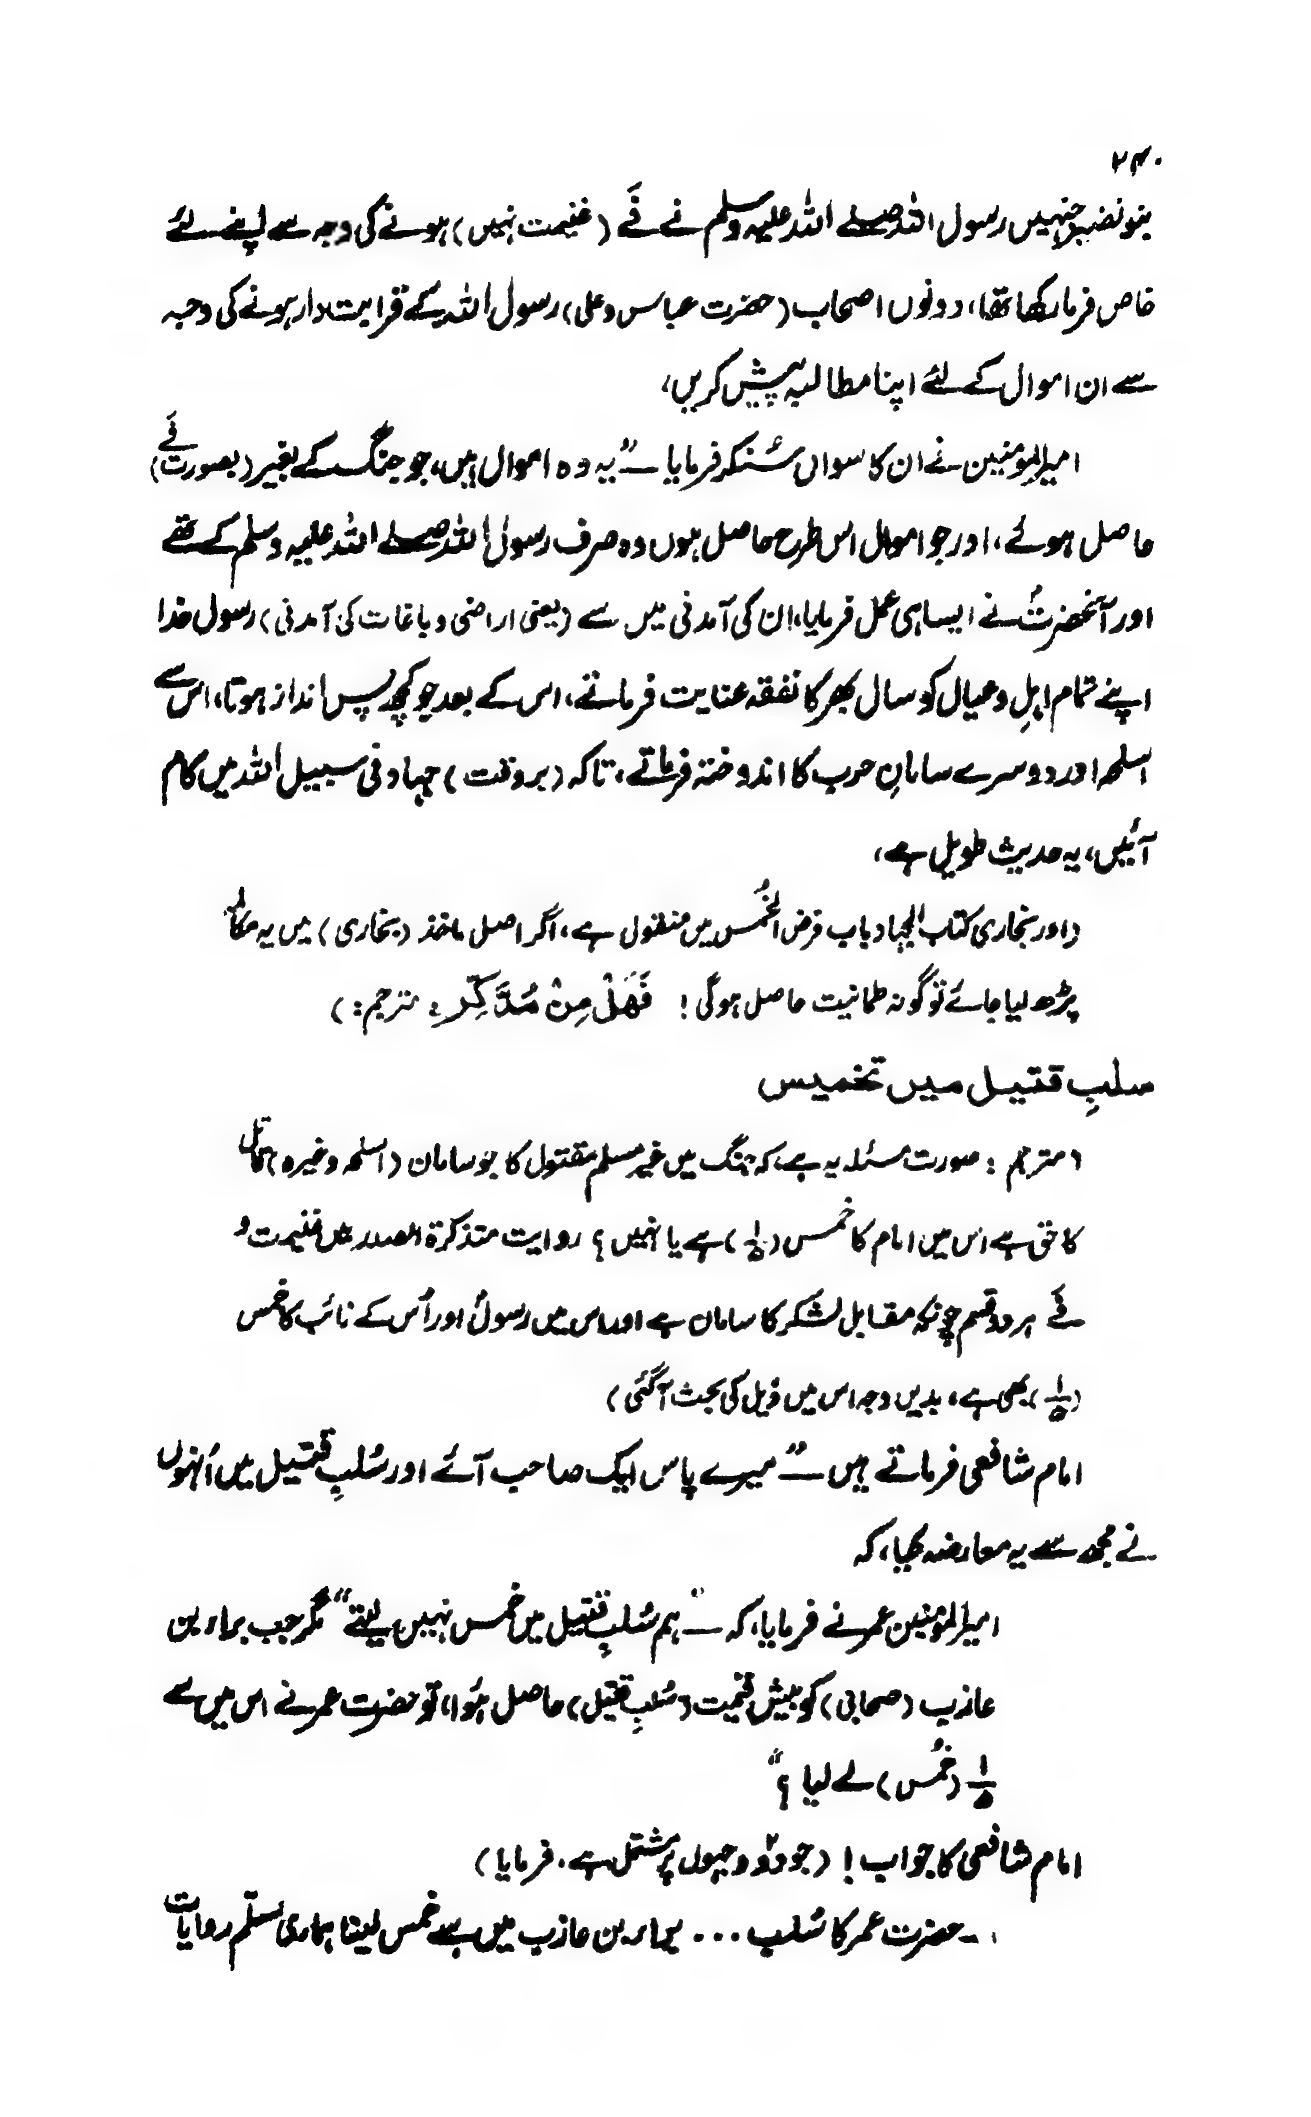 ۲۴۰
بنو نضیر جنہیں رسول اللہ صلے اللہ علیہ وسلم نے فَے (غنیمت نہیں) ہونے کی وجہ سے اپنے لئے
خاص فرما رکھا تھا، دونوں اصحاب (حضرت عباس و علی) رسول اللہ کے قرابت دار ہونے کی وجہ
سے ان اموال کے لئے اپنا مطالبہ پیش کریں،
امیر المومنین نے ان کا سوال سُنکر فرمایا — "یہ وہ اموال ہیں، جو جنگ کے بغیر (بصورت فَے)
حاصل ہوئے، اور جو اموال اس طرح حاصل ہوں وہ صرف رسول اللہ صلے اللہ علیہ وسلم کے تھے
اور آنحضرتؐ نے ایسا ہی عمل فرمایا، ان کی آمدنی میں سے (یعنی اراضی و باغات کی آمدنی) رسول خدا
اپنے تمام اہلِ و عیال کو سال بھر کا نفقہ عنایت فرماتے، اس کے بعد جو کچھ پس انداز ہوتا، اس سے
اسلحہ اور دوسرے سامانِ حرب کا اندوختہ فرماتے، تاکہ (بروقت) جہاد فی سبیل اللہ میں کام
آئیں، یہ حدیث طویل ہے،
(اور بخاری کتاب الجہاد باب فرض الخُمس میں منقول ہے، اگر اصل ماخذ (بخاری) میں یہ مکالمہ
پڑھ لیا جائے تو گونہ طمانیت حاصل ہوگی! فَهَلْ مِنْ مُدَّكِرٍ: مترجم:)
سلبِ قتیل میں تخمیس
(مترجم: صورت مسئلہ یہ ہے، کہ جنگ میں غیر مسلم مقتول کا جو سامان (اسلحہ وغیرہ) قاتل
کا حق ہے اس میں امام کا خُمس (۱/۵) ہے یا نہیں؟ روایت متذکرۃ الصدر میں غنیمت و
فَے ہر دو قسم چونکہ مقابل لشکر کا سامان ہے اور اس میں رسولؐ اور اُس کے نائب کا خمس
(۱/۵) بھی ہے، بدیں وجہ اس میں ذیل کی بحث آگئی)
امام شافعی فرماتے ہیں — "میرے پاس ایک صاحب آئے اور سُلبِ قتیل میں اُنہوں
نے مجھ سے یہ معارضہ کیا، کہ
امیر المومنین عمر نے فرمایا، کہ — "ہم سُلبِ قتیل میں خُمس نہیں لیتے" مگر جب براء بن
عازب (صحابی) کو بیش قیمت (سُلبِ قتیل) حاصل ہُوا، تو حضرت عمر نے اس میں سے
۱/۵ (خُمس) لے لیا؟"
امام شافعی کا جواب! (جو دو وجہوں پر مشتمل ہے. فرمایا)
۱- حضرت عمر کا سُلب ... براء بن عازب میں سے خمس لینا ہماری مسلّم روایات